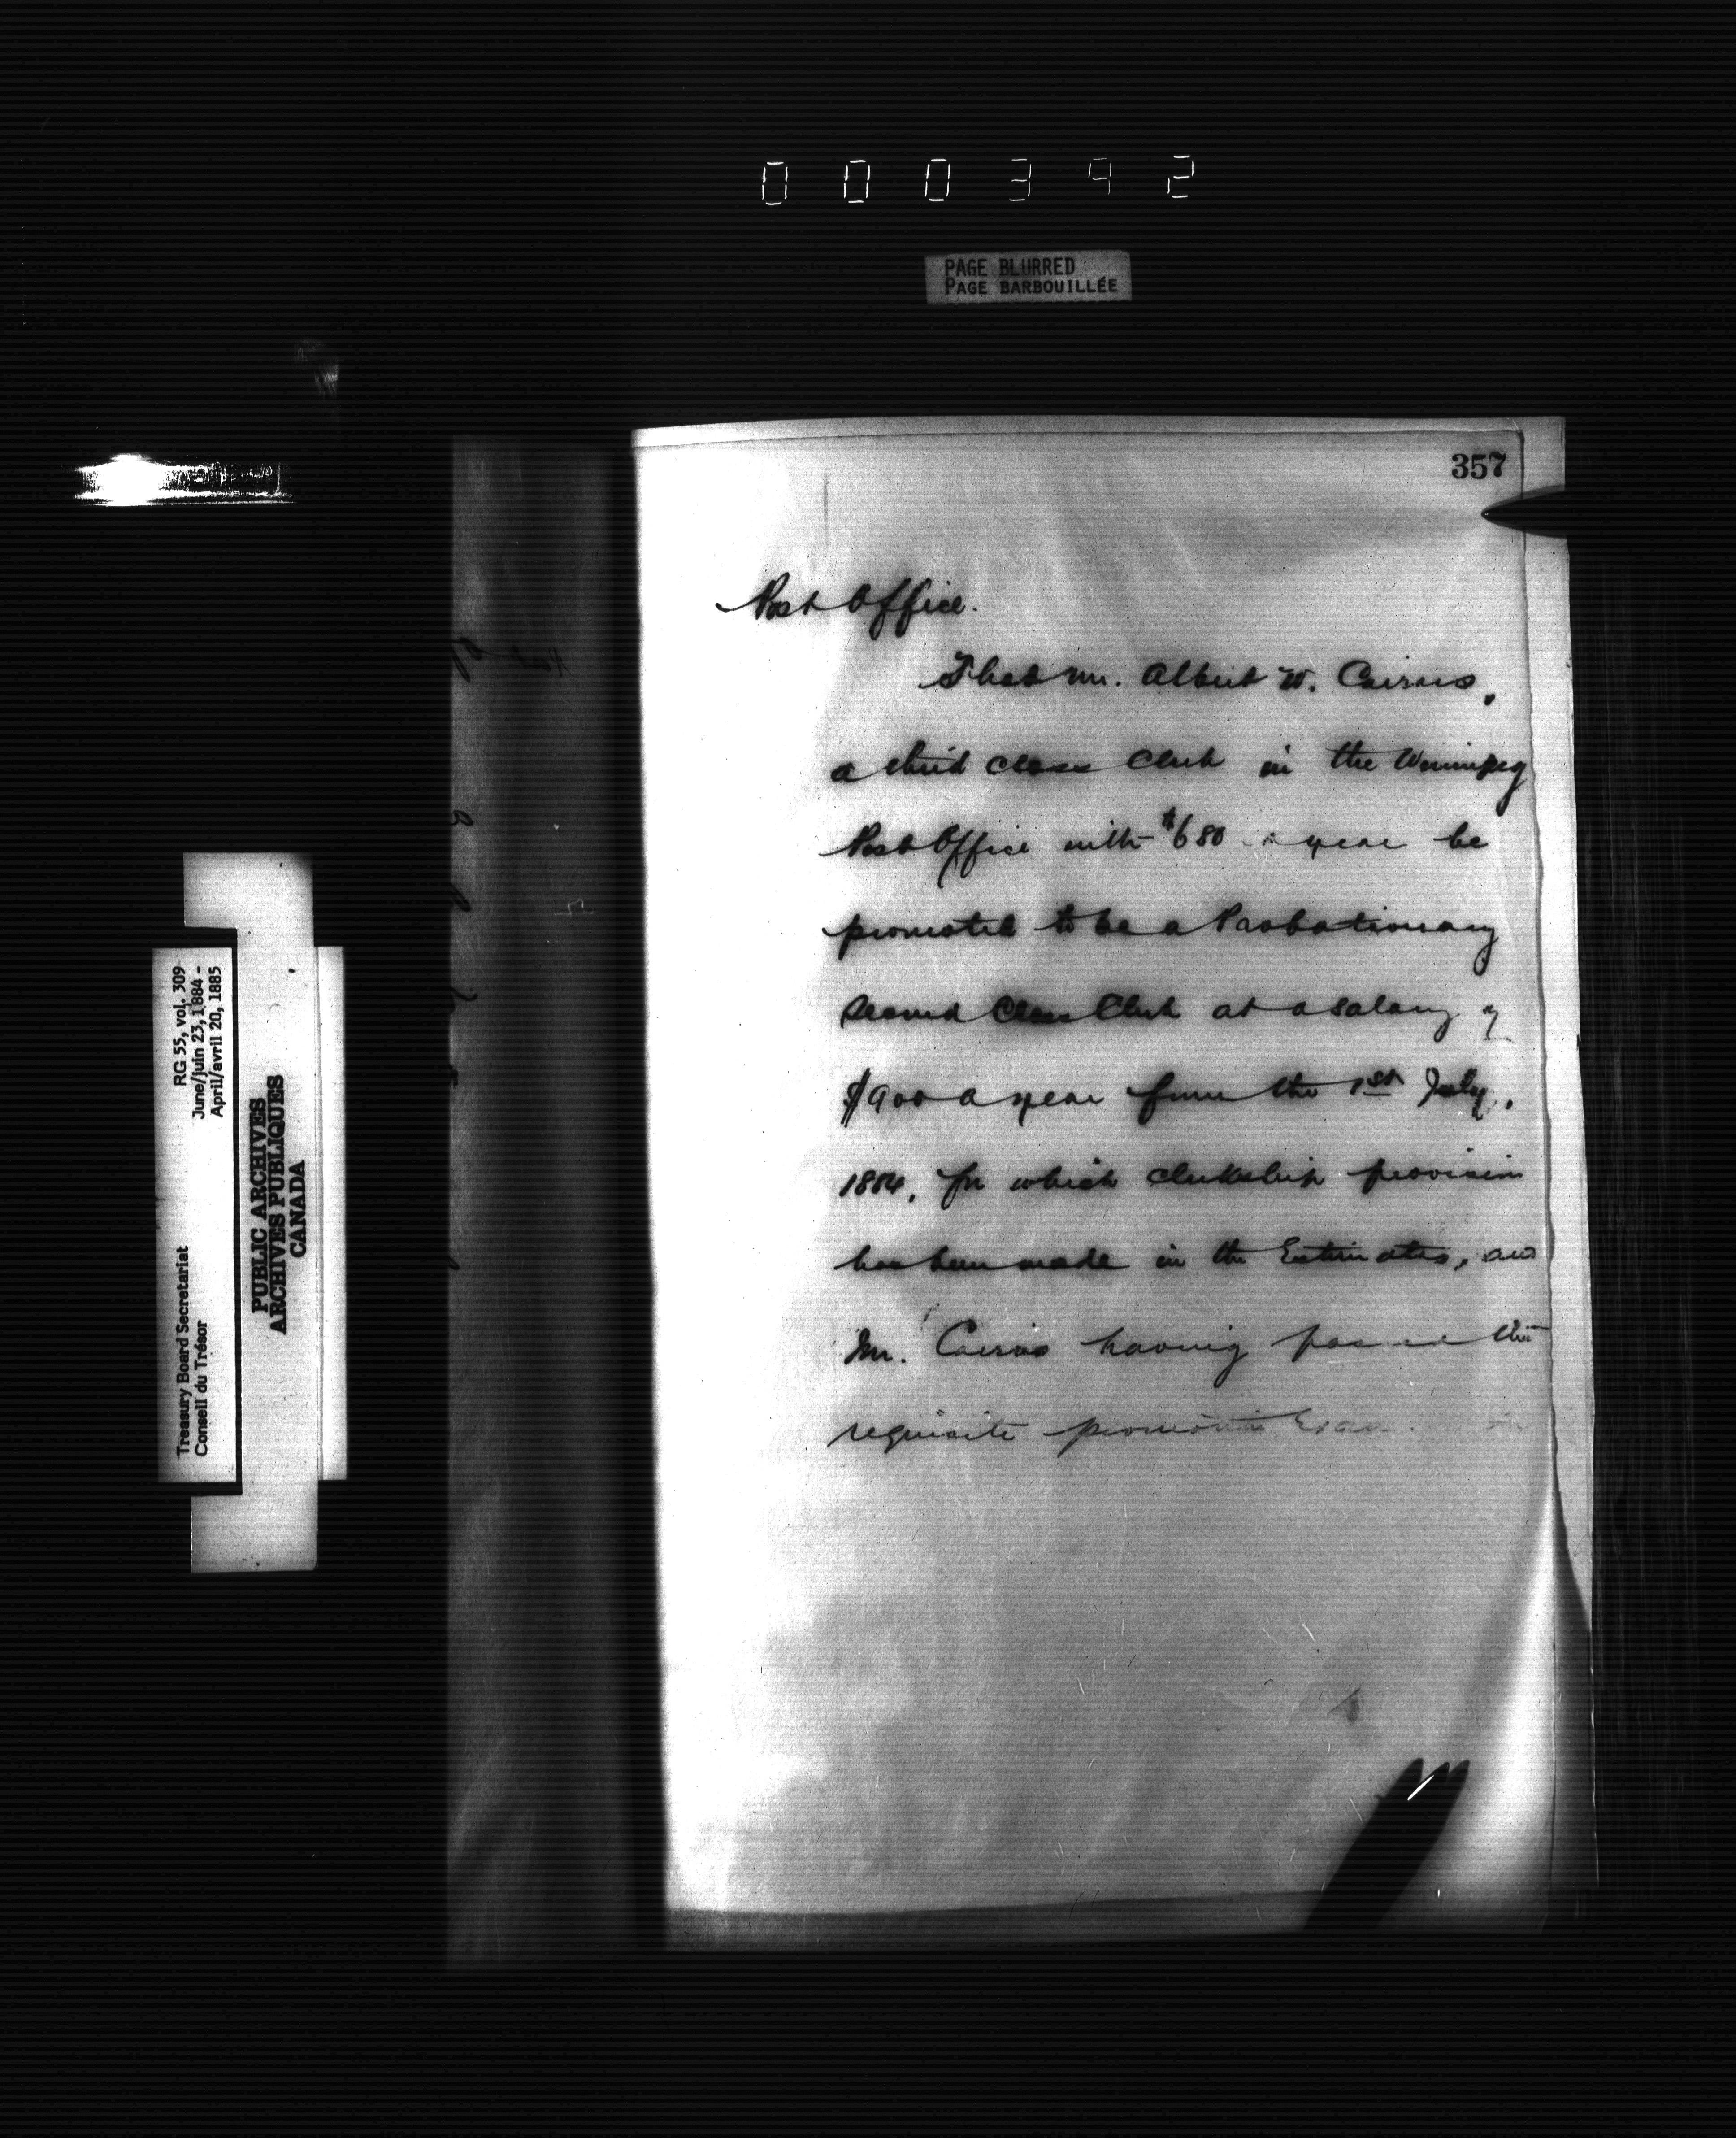 000392
PAGE BLURRED
PAGE BARBOUILLÉE
357
Post Office.
That Mr. Albert W. Cairns,
a third Class Clerk in the Winnipeg
Post Office with $680 a year be
promoted to be a Probationary
Second Class Clerk at a salary of
$900 a year from the 1st July,
1884, for which clerkship provision
has been made in the Estimates, and
Mr. Cairns having passed the
requisite promotion
RG 55, vol. 309
June/juin 23, 1884 -
April/avril 20, 1885
Treasury Board Secretariat
Conseil du Trésor
PUBLIC ARCHIVES
ARCHIVES PUBLIQUES
CANADA